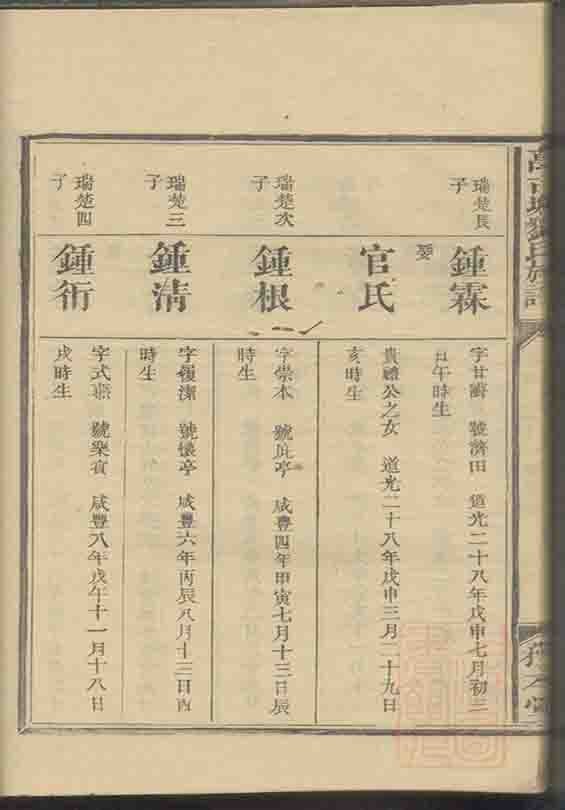 族譜
瑞楚長
子
鍾霖
字甘澍　號濟田　道光二十八年戊申七月初三
日午時生
娶
官氏
貴禮公之女　道光二十八年戊申三月二十九日
亥時生
瑞楚次
子
鍾根
字崇本　號　亭　咸豐四年甲寅七月十三日辰
時生
瑞楚三
子
鍾清
字復潔　號懷亭　咸豐六年丙辰八月十三日丙
時生
瑞楚四
子
鍾衍
字式燕　號樂賓　咸豐八年戊午十一月十八日
戌時生